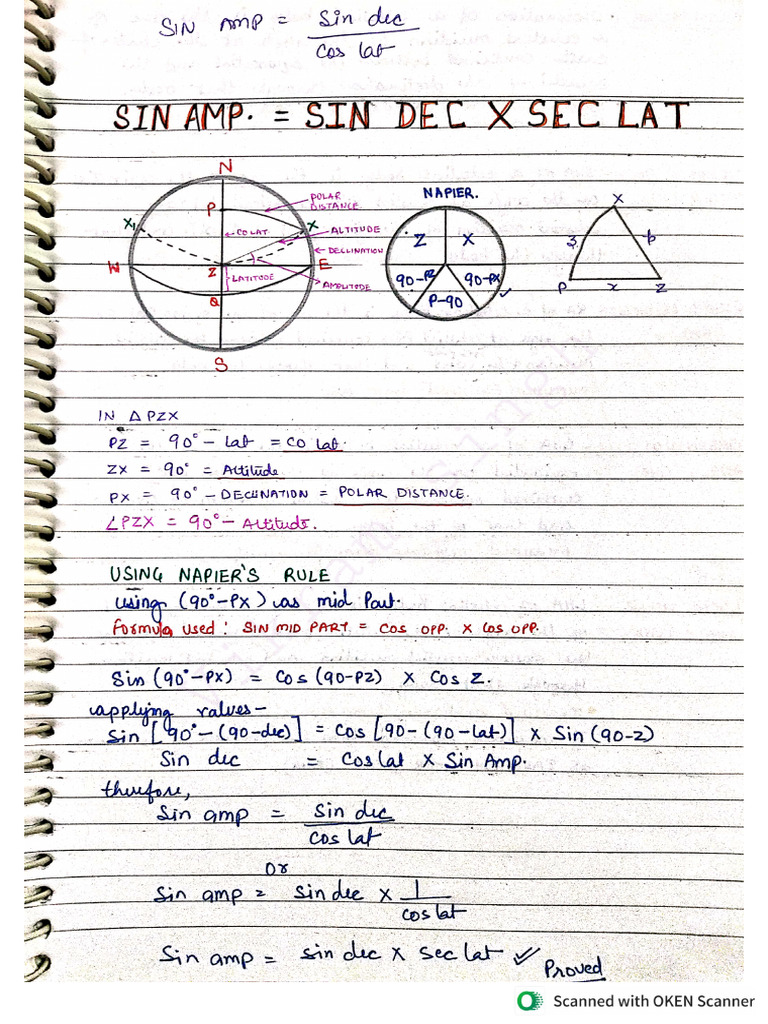 SIN AMP = Sin dec
Cos lat
SIN AMP. = SIN DEC X SEC LAT
N
P
POLAR DISTANCE
X₁
X
CO LAT
ALTITUDE
DECLINATION
W
Z
E
LATITUDE
AMPLITUDE
Q
S
NAPIER.
Z X
90-PZ 90-PX
P-90
X
z p
P x Z
IN Δ PZX
PZ = 90° - Lat = CO Lat.
ZX = 90° = Altitude
PX = 90° - DECLINATION = POLAR DISTANCE.
∠PZX = 90° - Altitude.
USING NAPIER'S RULE
using (90°-PX) as mid Part.
formula used: SIN MID PART = COS OPP. X COS OPP.
Sin (90°-PX) = Cos (90-PZ) X Cos Z.
applying values-
Sin [90°-(90-dec)] = Cos [90-(90-lat)] X Sin (90-Z)
Sin dec = Cos Lat X Sin Amp.
therefore,
Sin amp = Sin dec
Cos Lat
Or
Sin amp = Sin dec X 1
Cos lat
Sin amp = Sin dec X sec lat ✓ Proved
Scanned with OKEN Scanner